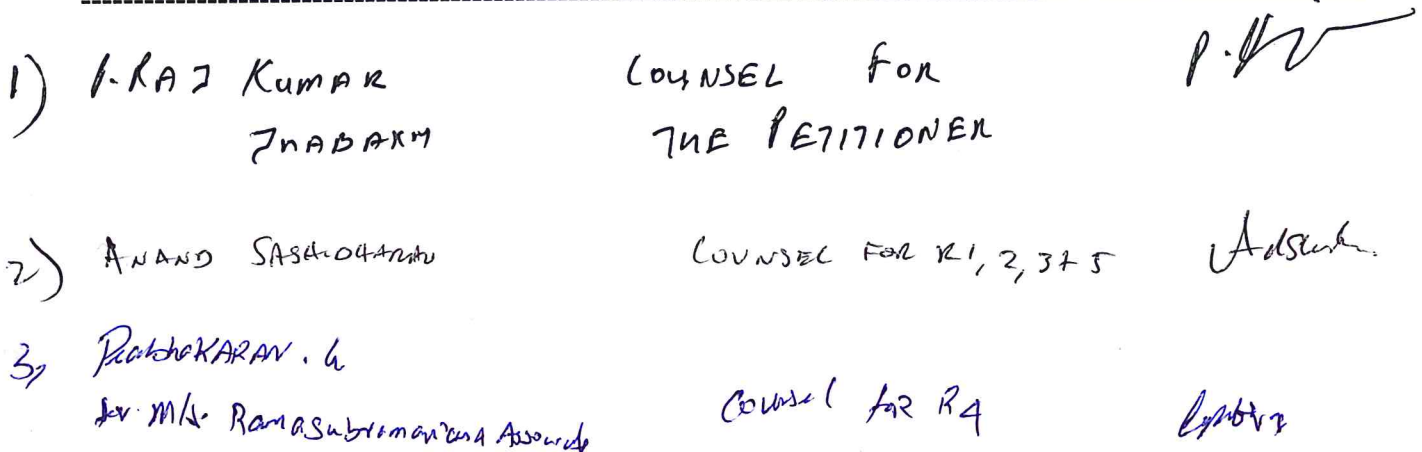 1) P. RAJ KUMAR COUNSEL FOR
JHABAKH THE PETITIONER
2) ANAND SASHIDHARAN COUNSEL FOR R1, 2, 3 + 5
3, PrabhaKARAN. G
for M/s. Ramasubramaniam & Associates Counsel for R4